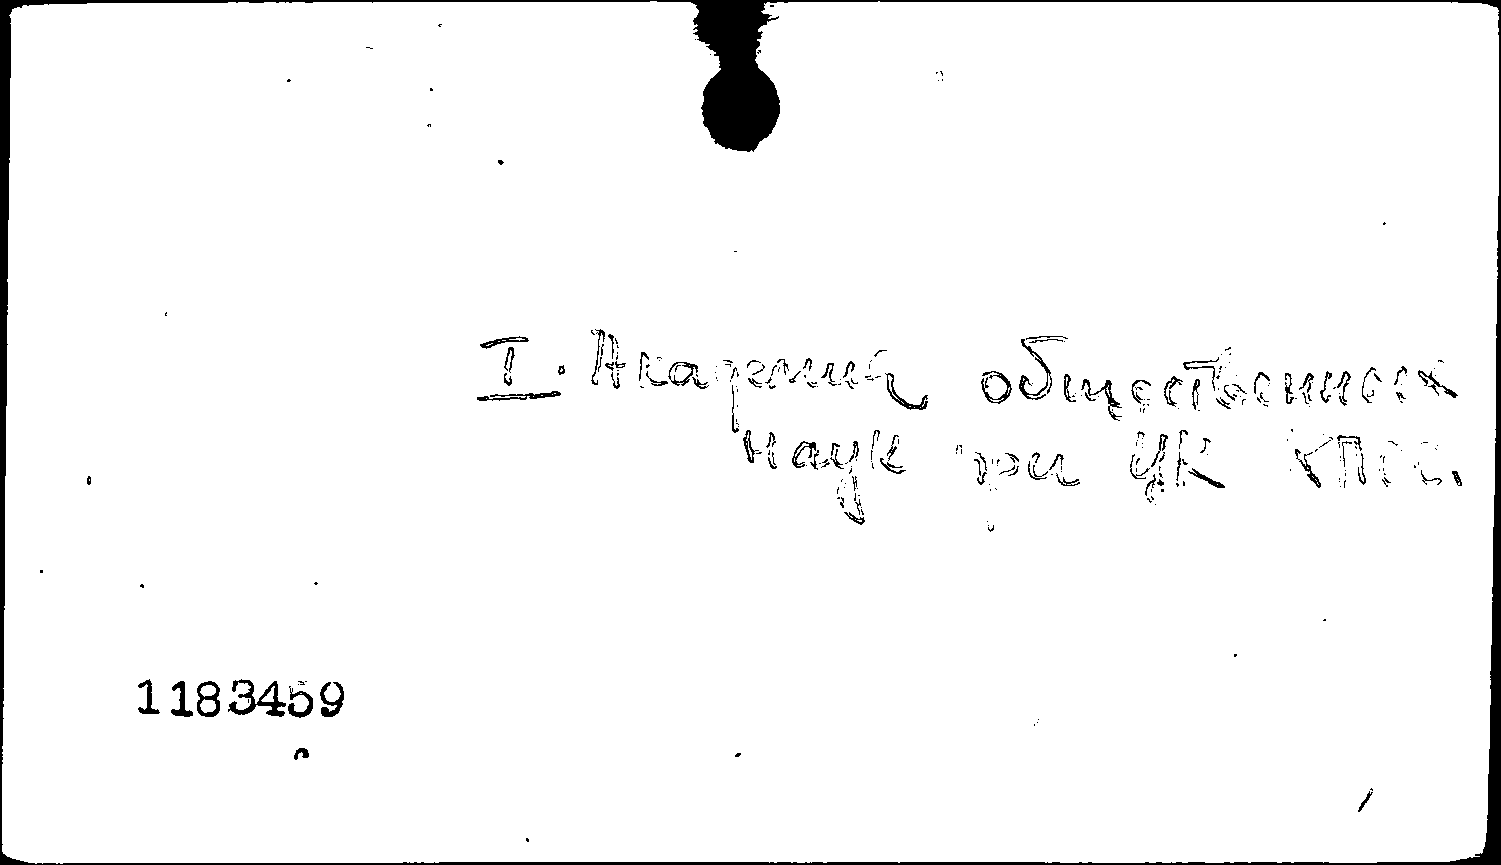 I. Академия общественных
наук при ЦК КПСС.
1183459